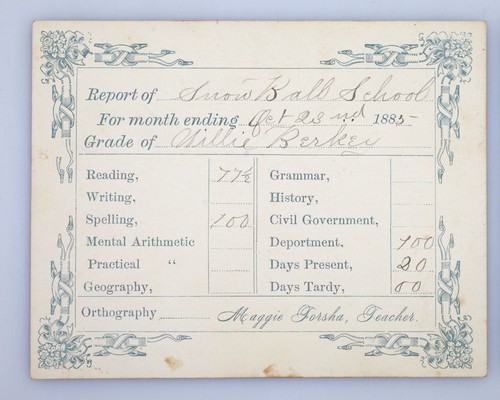 Report of Snow Ball School
For month ending Oct 23nd 1885
Grade of Willie Berkey
Reading, 77½ Grammar,
Writing, History,
Spelling, 100 Civil Government,
Mental Arithmetic Deportment, 100
Practical “ Days Present, 20
Geography, Days Tardy, 00
Orthography Maggie Forsha, Teacher.